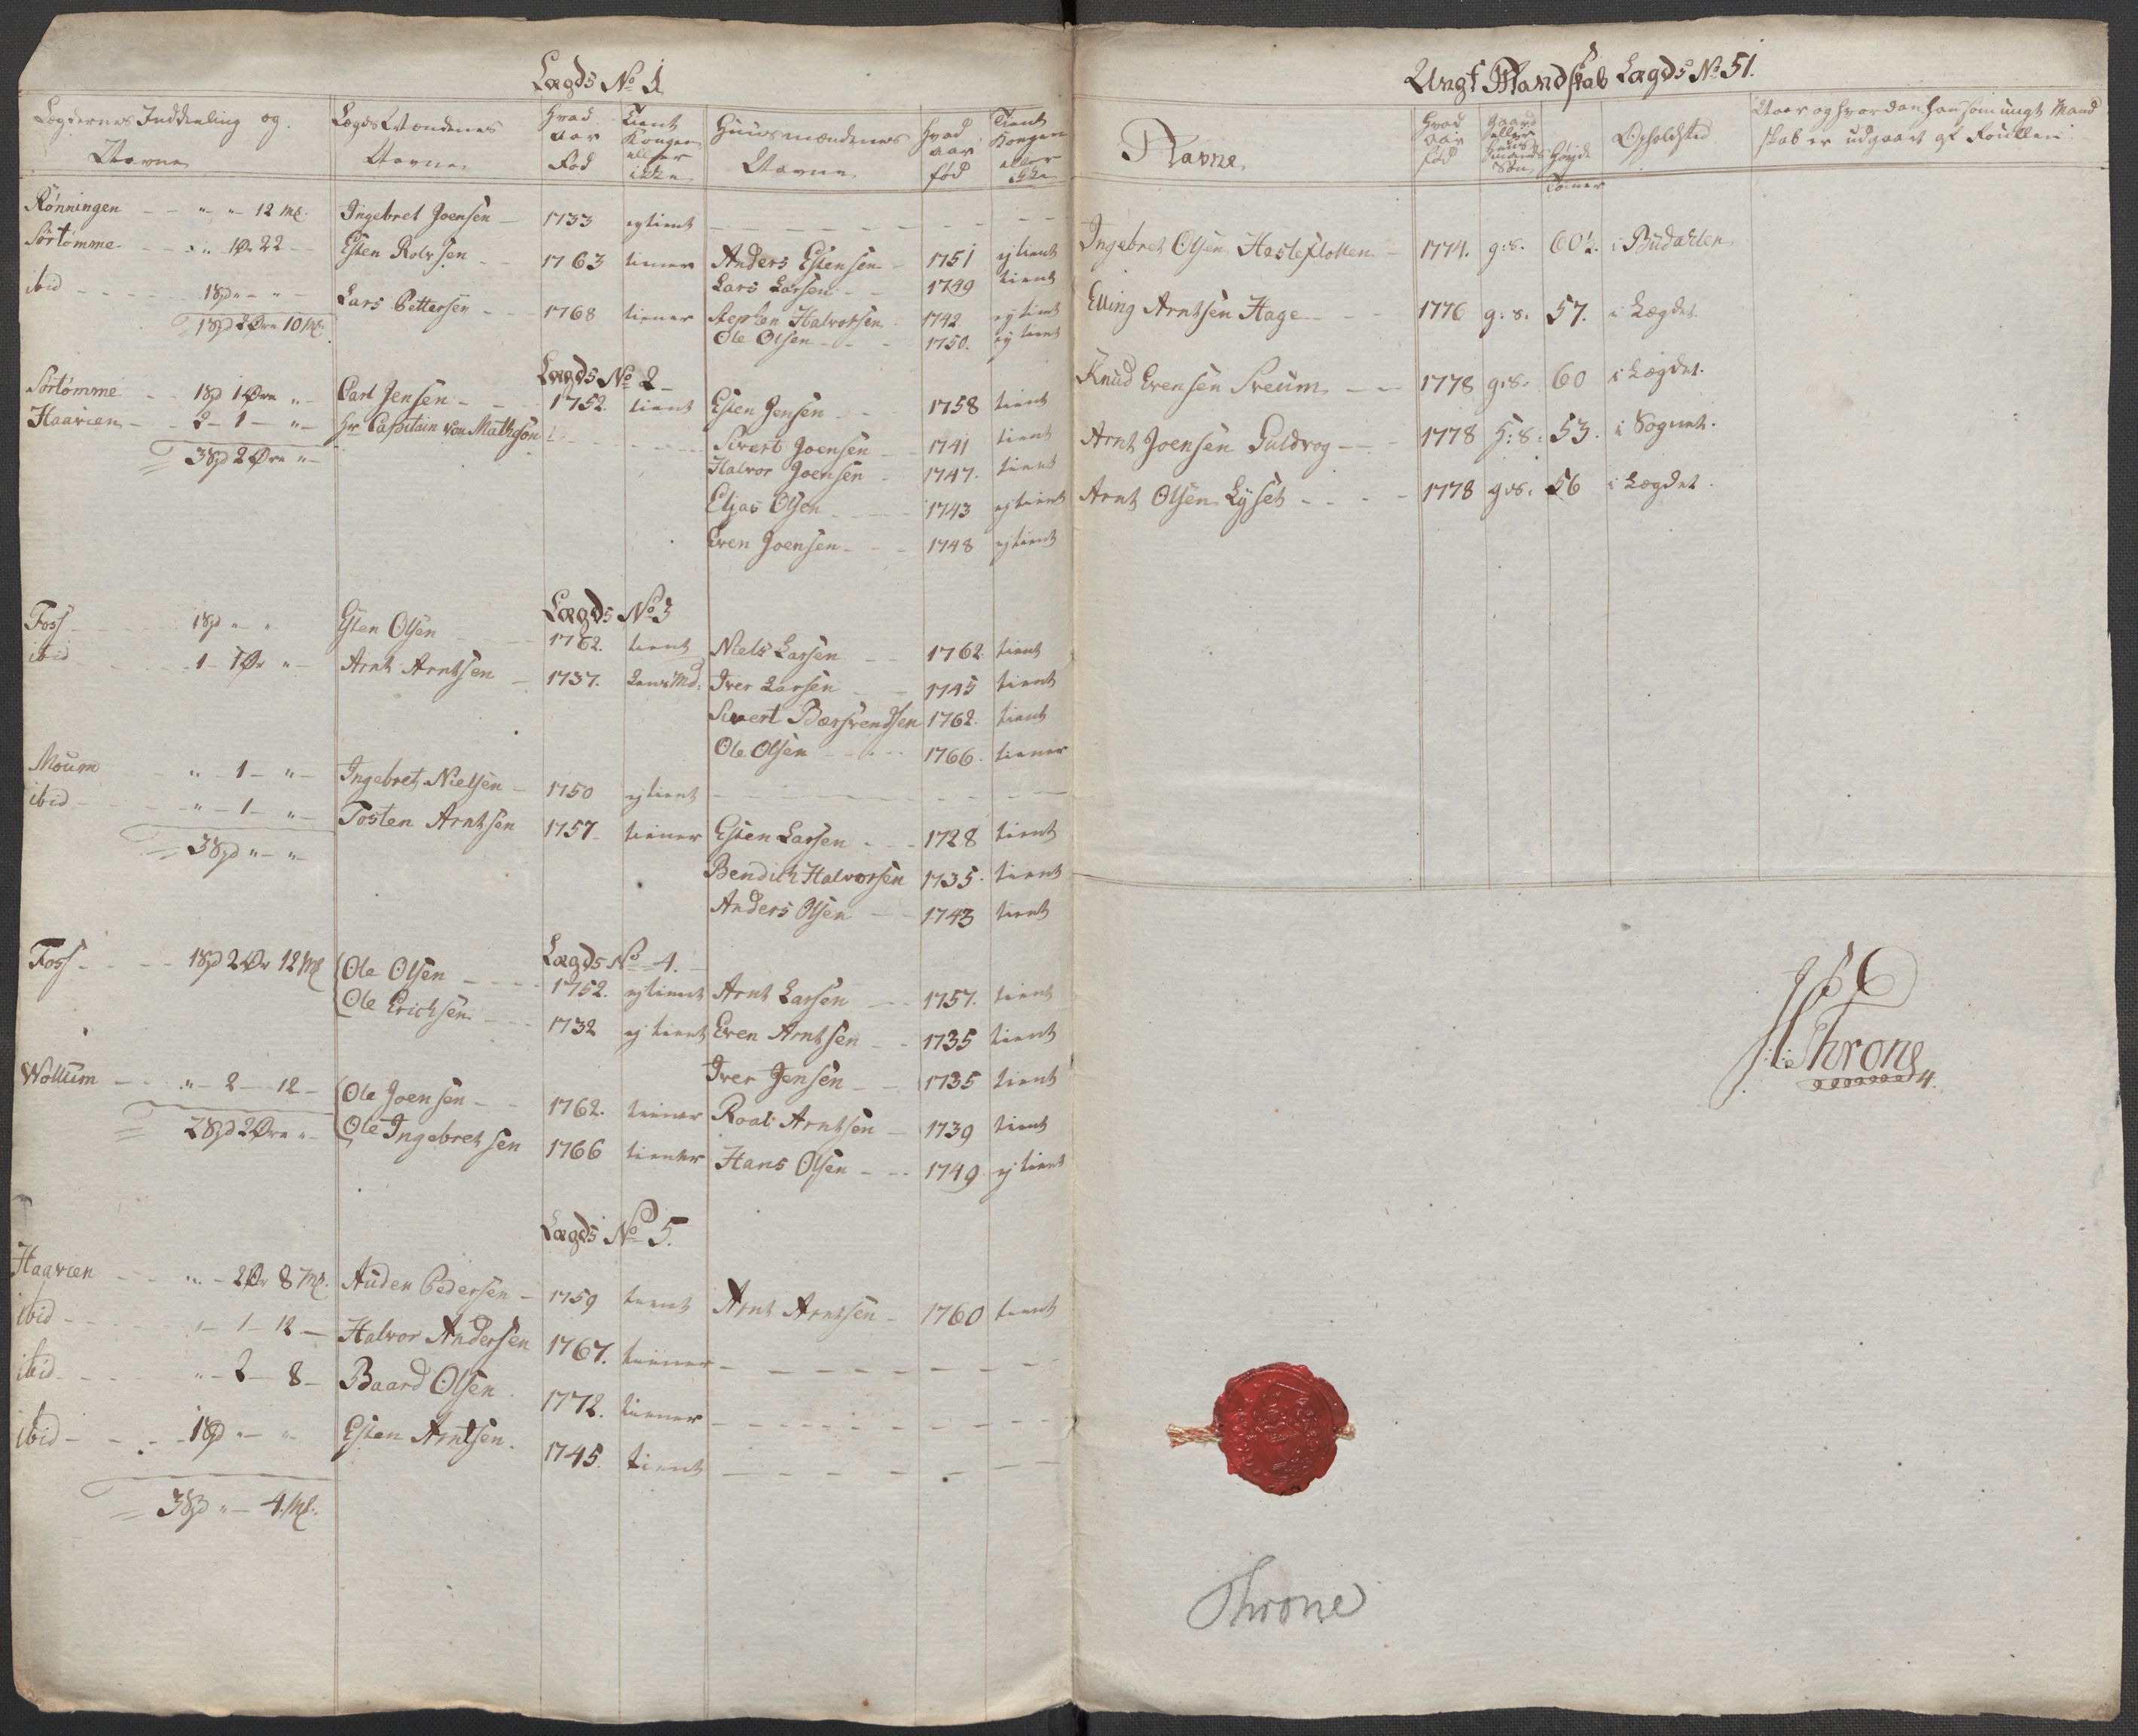 Lægds No 1
Lægdernes Inddeeling og Navne | Lægds Mændenes Navne | Hvad Aar Fød | Tient Kongen eller ikke | Huusmændenes Navne | Hvad Aar fød | Tient Kongen eller ikke
Rønningen - - " - " - 12 Ml. Ingebret Joensen - 1733 ej tient
Sørtømme - - " 1 Ør 22 - Esten Rolvsen - 1763 tiener Anders Estensen - 1751 ej tient
Lars Larsen - - 1749 tient
ibid - - - 1 Spd " - " - Lars Pettersen - 1768 tiener Stephen Halvorsen 1742 ej tient
1 Spd 2 Øre 10 Ml. Ole Olsen - - 1750. ej tient
Lægds No 2
Sørtømme - 1 Spd 1 Øre " - Carl Jensen - 1752. tient Esten Jensen - 1758 tient
Haavien - - 2 - 1 - " - Hr Capitain von Matheson - - Sivert Joensen - 1741 tient
3 Spd 2 Øre " - Halvor Joensen - 1747. tient
Eljas Olsen - - 1743 ej tient
Even Joensen - - 1748 ej tient
Lægds No 3
Foss - - 1 Spd " - " Esten Olsen - - 1762. tient Niels Larsen - - 1762 tient
ibid - - 1 - 1 Ør " - Arnt Arntsen - 1737. Lens Md. Iver Larsen - - 1745 tient
Sivert Bærsvendsen 1762. tient
Ole Olsen - - - 1766. tiener
Moum - - " - 1 - " - Ingebret Nielsen - 1750 ej tient
ibid - - " - 1 - " - Tosten Arntsen 1757 - tiener Esten Larsen - - 1728 tient
3 Spd " - " - Bendich Halvorsen 1735. tient
Anders Olsen - - 1743 tient
Lægds No 4.
Foss - - - 1 Spd 2 Ør 12 Ml Ole Olsen - - 1752. ej tient Arnt Larsen - - 1757. tient
Ole Erichsen - - 1732 ej tient Even Arntsen - - 1735 tient
Iver Jensen - - 1735 tient
Wollum - - " - 2 - 12 - Ole Joensen - - 1762. tiener Roal Arntsen - 1739 tient
2 Spd 2 Øre " - Ole Ingebretsen 1766 tiener Hans Olsen - - 1749 ej tient
Lægds No 5.
Haavien - - " - 2 Ør 8 Ml. Auden Pedersen - 1759 tient Arnt Arntsen - 1760 tient
ibid - - - " - 1 - 12 - Halvor Andersen 1767. tiener
ibid - - - " - 2 - 8 - Baard Olsen 1772. tiener
ibid - - - 1 Spd " - " Esten Arntsen. 1745. tient
3 Spd " - 4 Ml.
Ungt Mandskab Lægds No 51.
Navne. | Hvad Aar fød | Gaard eller Huus Mands Søn | Høyde Tomer | Opholdsted | Naar og hvordan han som ungt Mandskab er udgaaet af Roullen
Ingebret Olsen Hasleflotten - 1774. g:s. 60½. i Budahlen
Elling Arntsen Hage - - - 1776 g:s. 57. i Lægdet.
Knud Evensen Sveum - - 1778 g:s. 60 i Lægdet.
Arnt Joensen Guldvog - - 1778 h:s. 53. i Sognet.
Arnt Olsen Lyset - - - 1778 g:s. 56 i Lægdet.
Throne
Throne